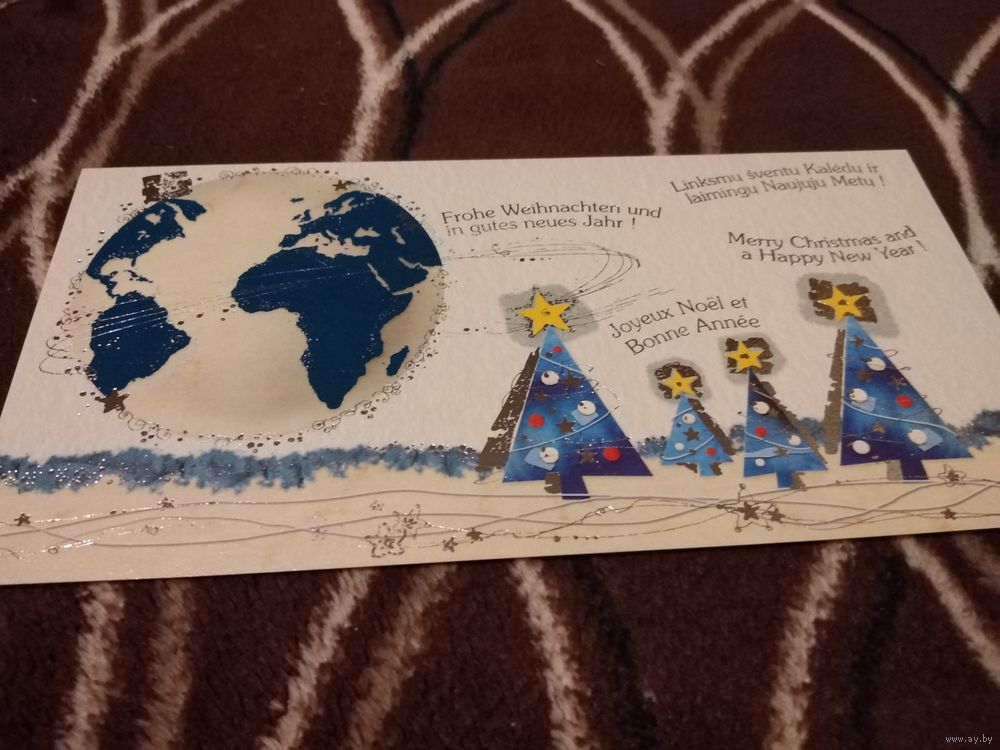 Frohe Weihnachten und
in gutes neues Jahr !
Linksmu šventu Kalėdu ir
laimingu Naujuju Metu !
Merry Christmas and
a Happy New Year !
Joyeux Noël et
Bonne Année
www.ay.by